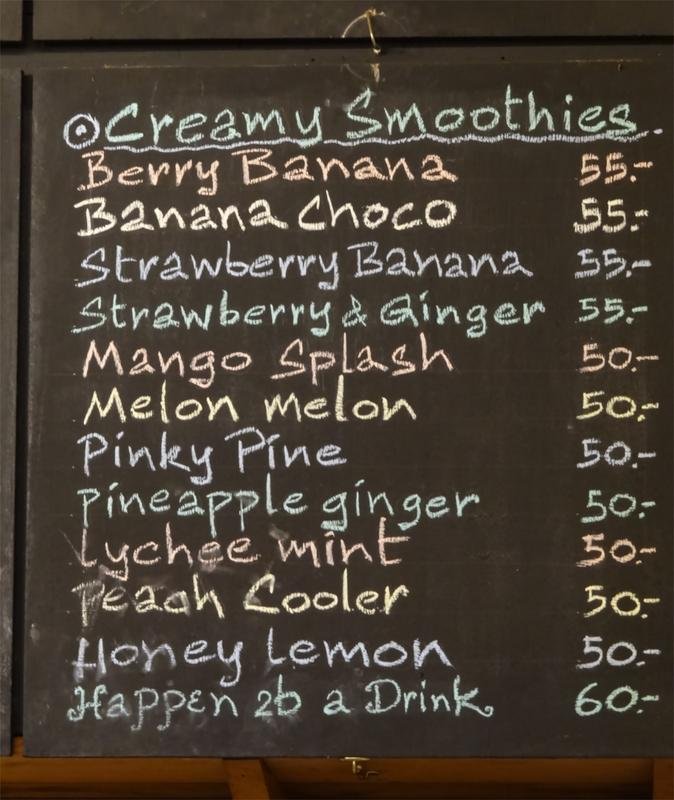 Creamy Smoothies.
Berry Banana 55.-
Banana Choco 55.-
Strawberry Banana 55.-
Strawberry & Ginger 55.-
Mango Splash 50.-
Melon melon 50.-
Pinky Pine 50.-
Pineapple ginger 50.-
Lychee mint 50.-
Peach Cooler 50.-
Honey Lemon 50.-
Happen 2b a Drink 60.-